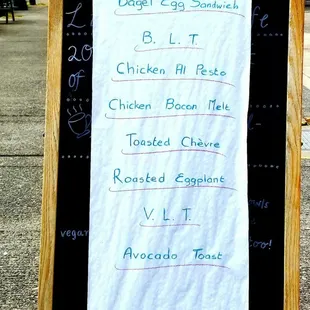 Bagel Egg Sandwich
B. L. T
Chicken Al Pesto
Chicken Bacon Melt
Toasted Chèvre
Roasted Eggplant
V. L. T.
Avocado Toast
20
of
vegan